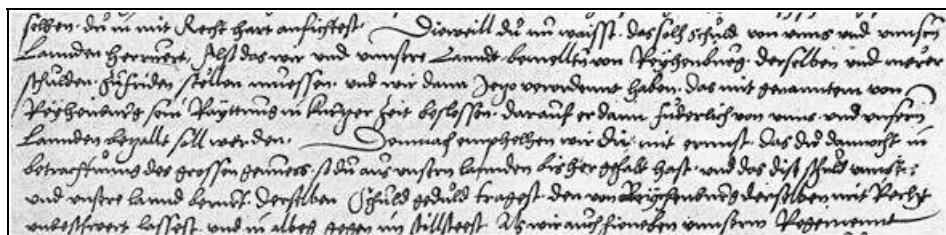 selben. du in mit Recht hart anfichtest. Dieweill du nu waisst. das solh schuld von unns und unnsern
Lannden herruert. Also das wir und unnsere Lannde benellten von Reichenburg. derselben und merer
schulden. zufriden stellen muessen. und wir dann Jezo verordennt haben. das mit genanntem von
Reichenburg sein Raittung in kurtzer Zeit beslossen. darauf er dann furderlich von unns. und unnsern
Lannden bezallt soll werden. Demnach emphelhen wir dir. mit ernnst. das du dannocht in
betrachtung des grossen genuess. so du aus unnsern lannden bisher gehabt hast. und das dise schuld unns
und unnsere lannd beruert. derselben Schuld geduld tragest. den von Reichenburg derselben mit Recht
unbeswert lassest. und in albeg gegen im stillsteest. Als wir auch hieneben unnserm Regiment